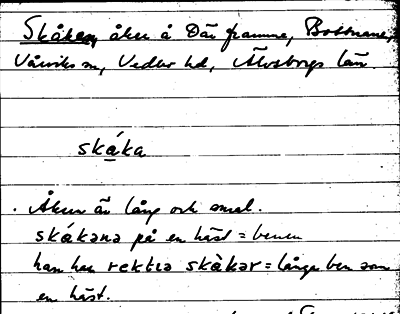 Skåken, åker å Där framme, Bottnane,
Vårviks sn, Vedbo hd, Älvsborgs län.
skáka
. Åkern är lång och smal.
skákana på en häst = benen
han har rektia skàkar = långa ben som
en häst.